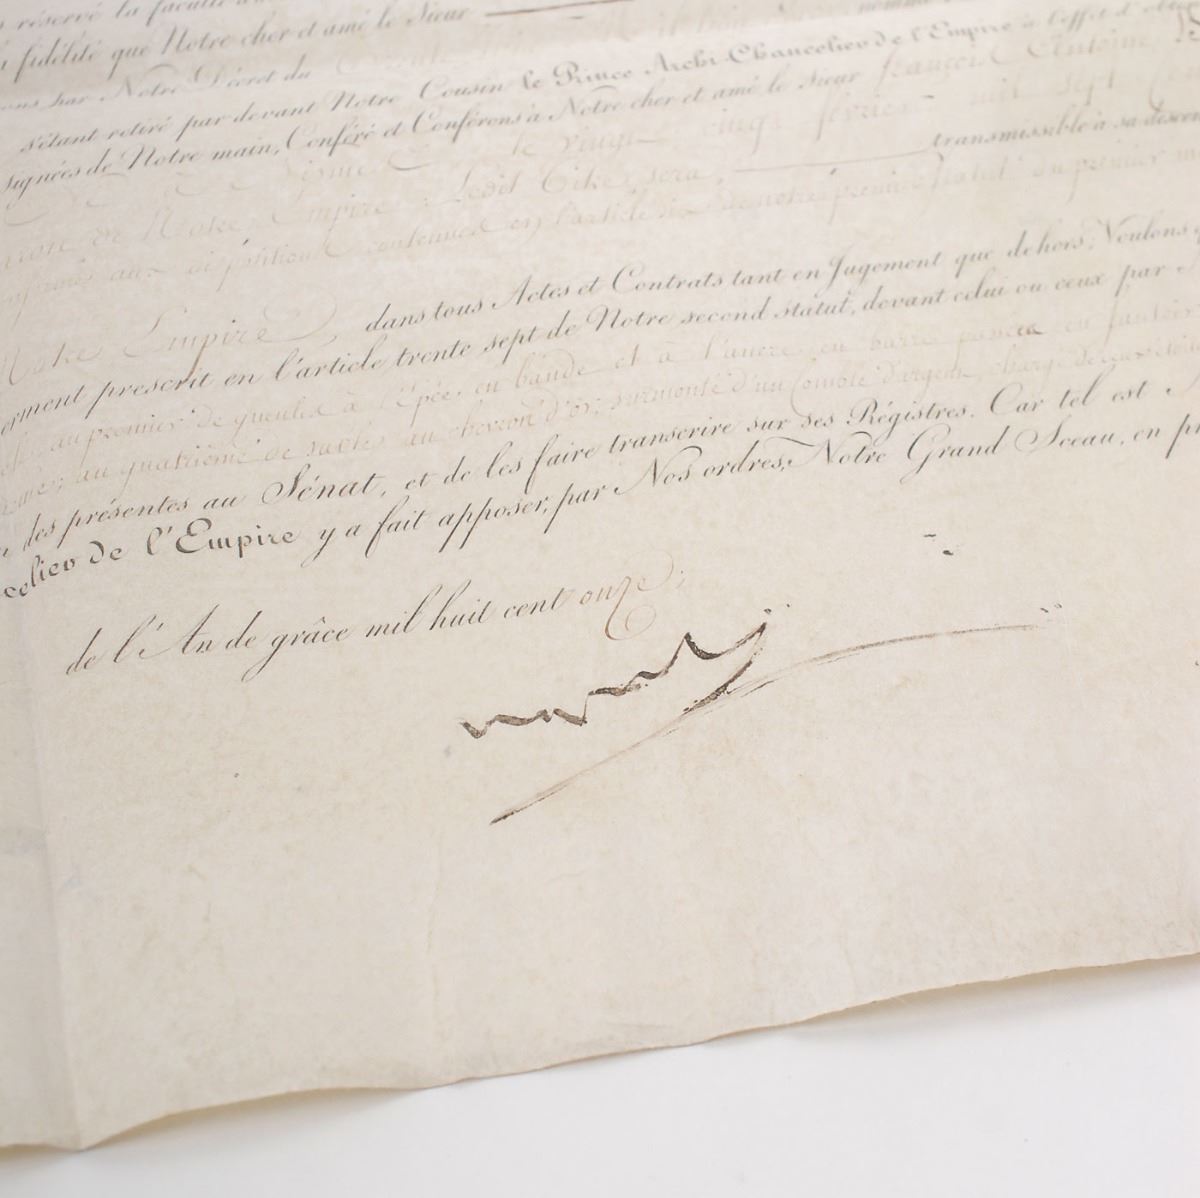 réservé la faculté
fidélité que Notre cher et amé le Sieur
par Notre Décret du
s'étant retiré par devant Notre Cousin le Prince Archi-Chancelier de l'Empire à l'effet d'
signées de Notre main, Conféré et Conférons à Notre cher et amé le Sieur françois Antoine
le vingt cinq février mil sept
de Notre Empire. Ledit Titre sera, transmissible à sa
aux dispositions contenues en l'article dix de notre premier statut du premier
Notre Empire dans tous Actes et Contrats tant en Jugement que dehors; Voulons
prescrit en l'article trente sept de Notre second statut, devant celui ou ceux par
au premier de gueules à l'Epée en bande et à l'ancre en barre passée en sautoir
au quatrième de sable au chevron d'or; surmonté d'un Comble d'argent, chargé de
des présentes au Sénat, et de les faire transcrire sur ses Régistres. Car tel est
de l'Empire y a fait apposer, par Nos ordres, Notre Grand Sceau, en
de l'An de grâce mil huit cent onze;